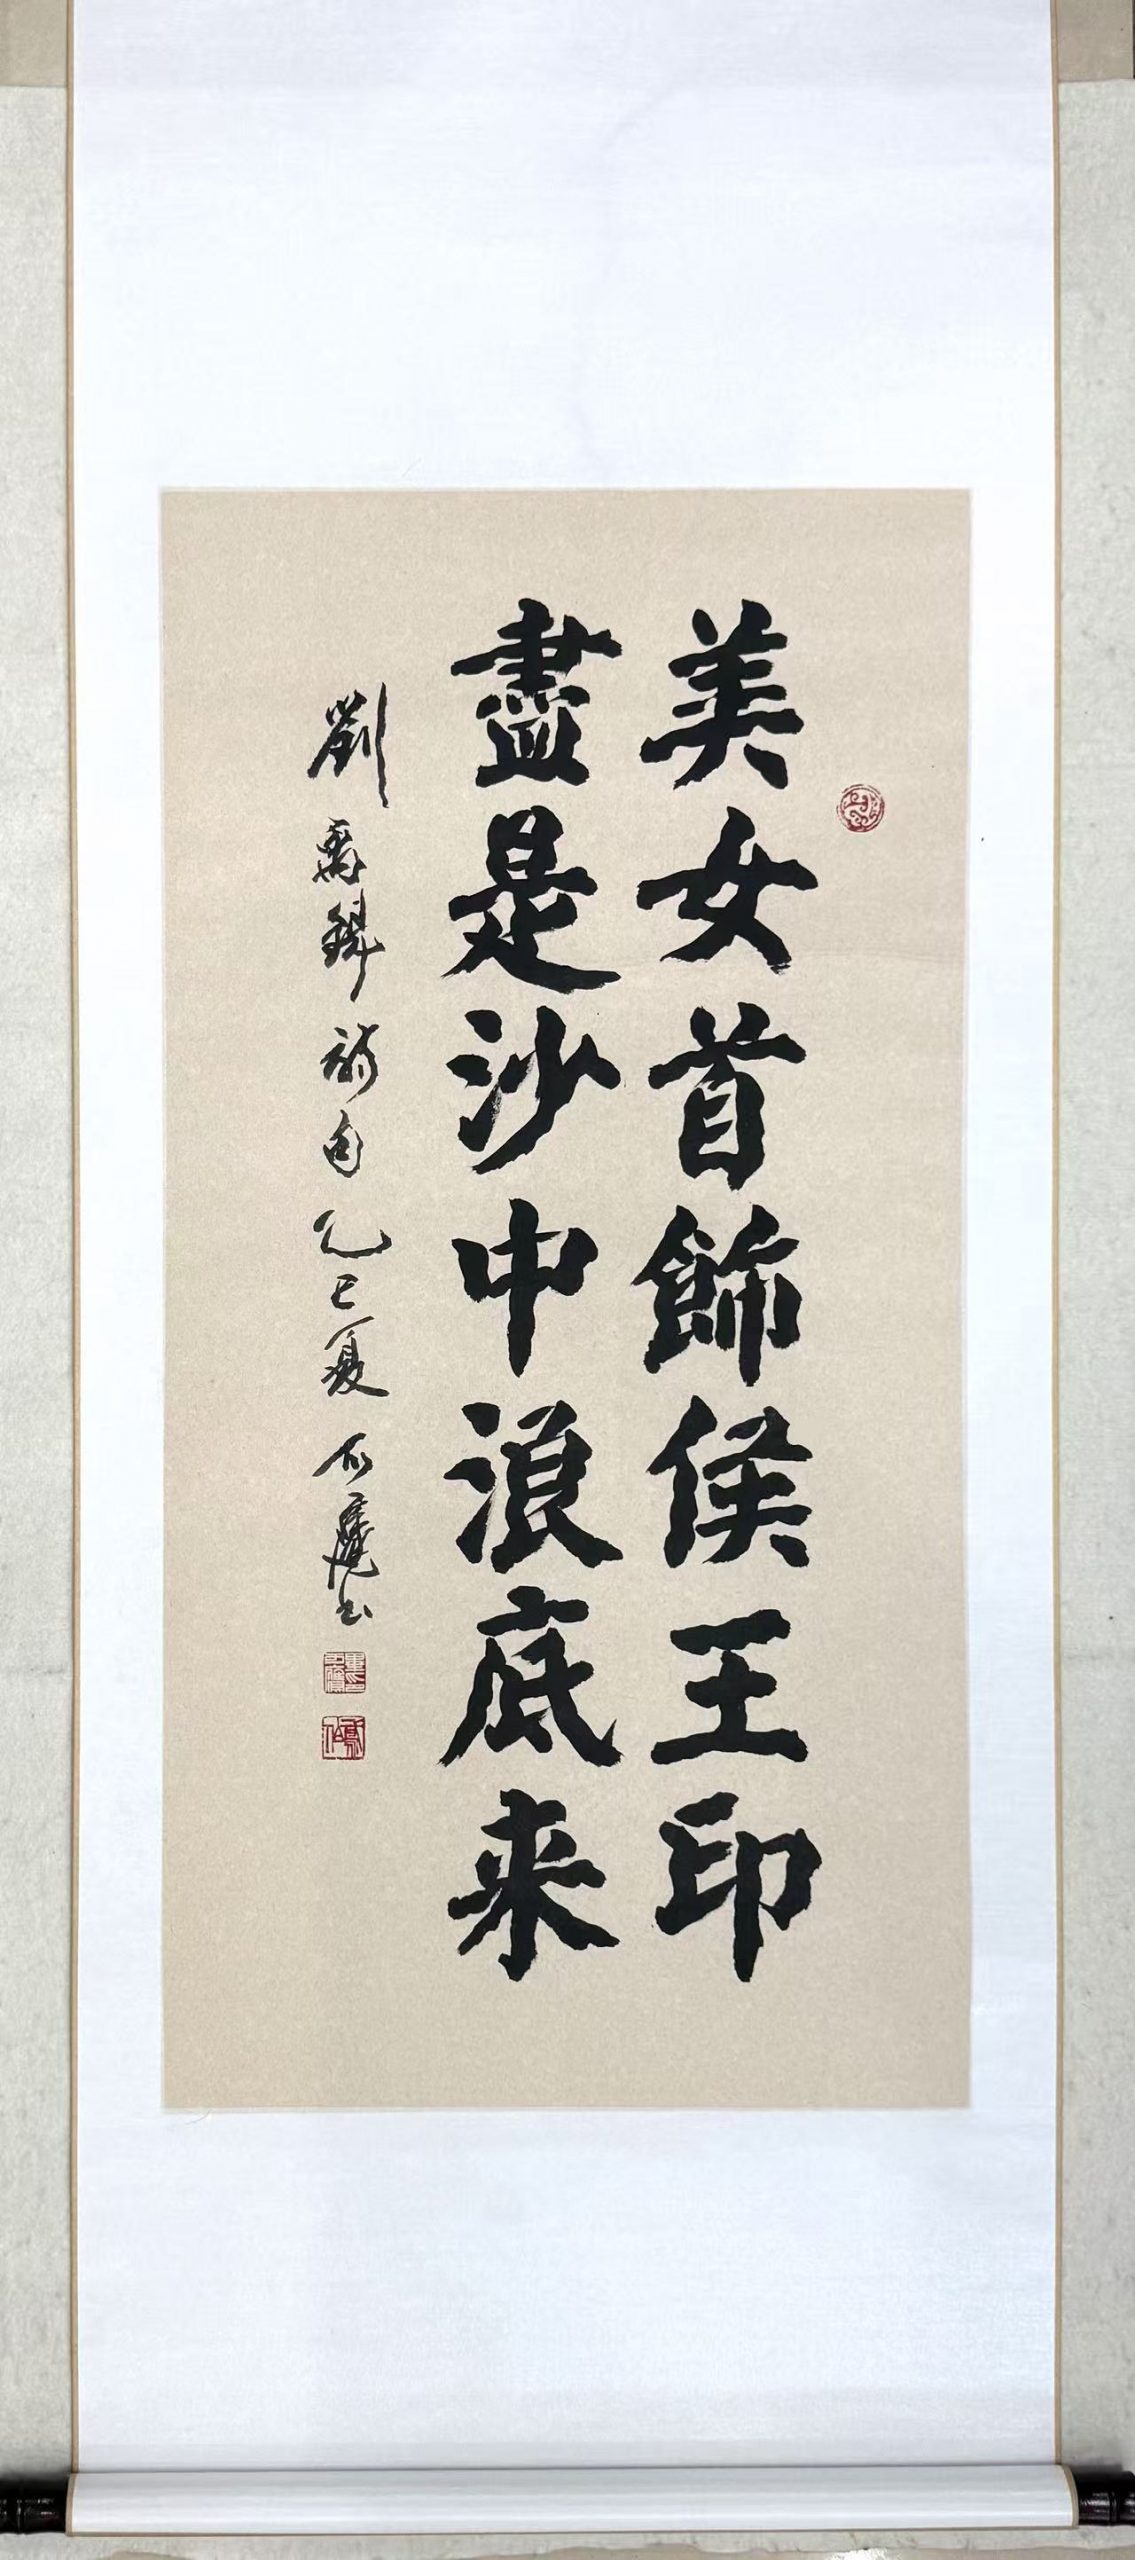 美女首飾侯王印
盡是沙中浪底来
劉禹錫詩句乙巳夏石麓书